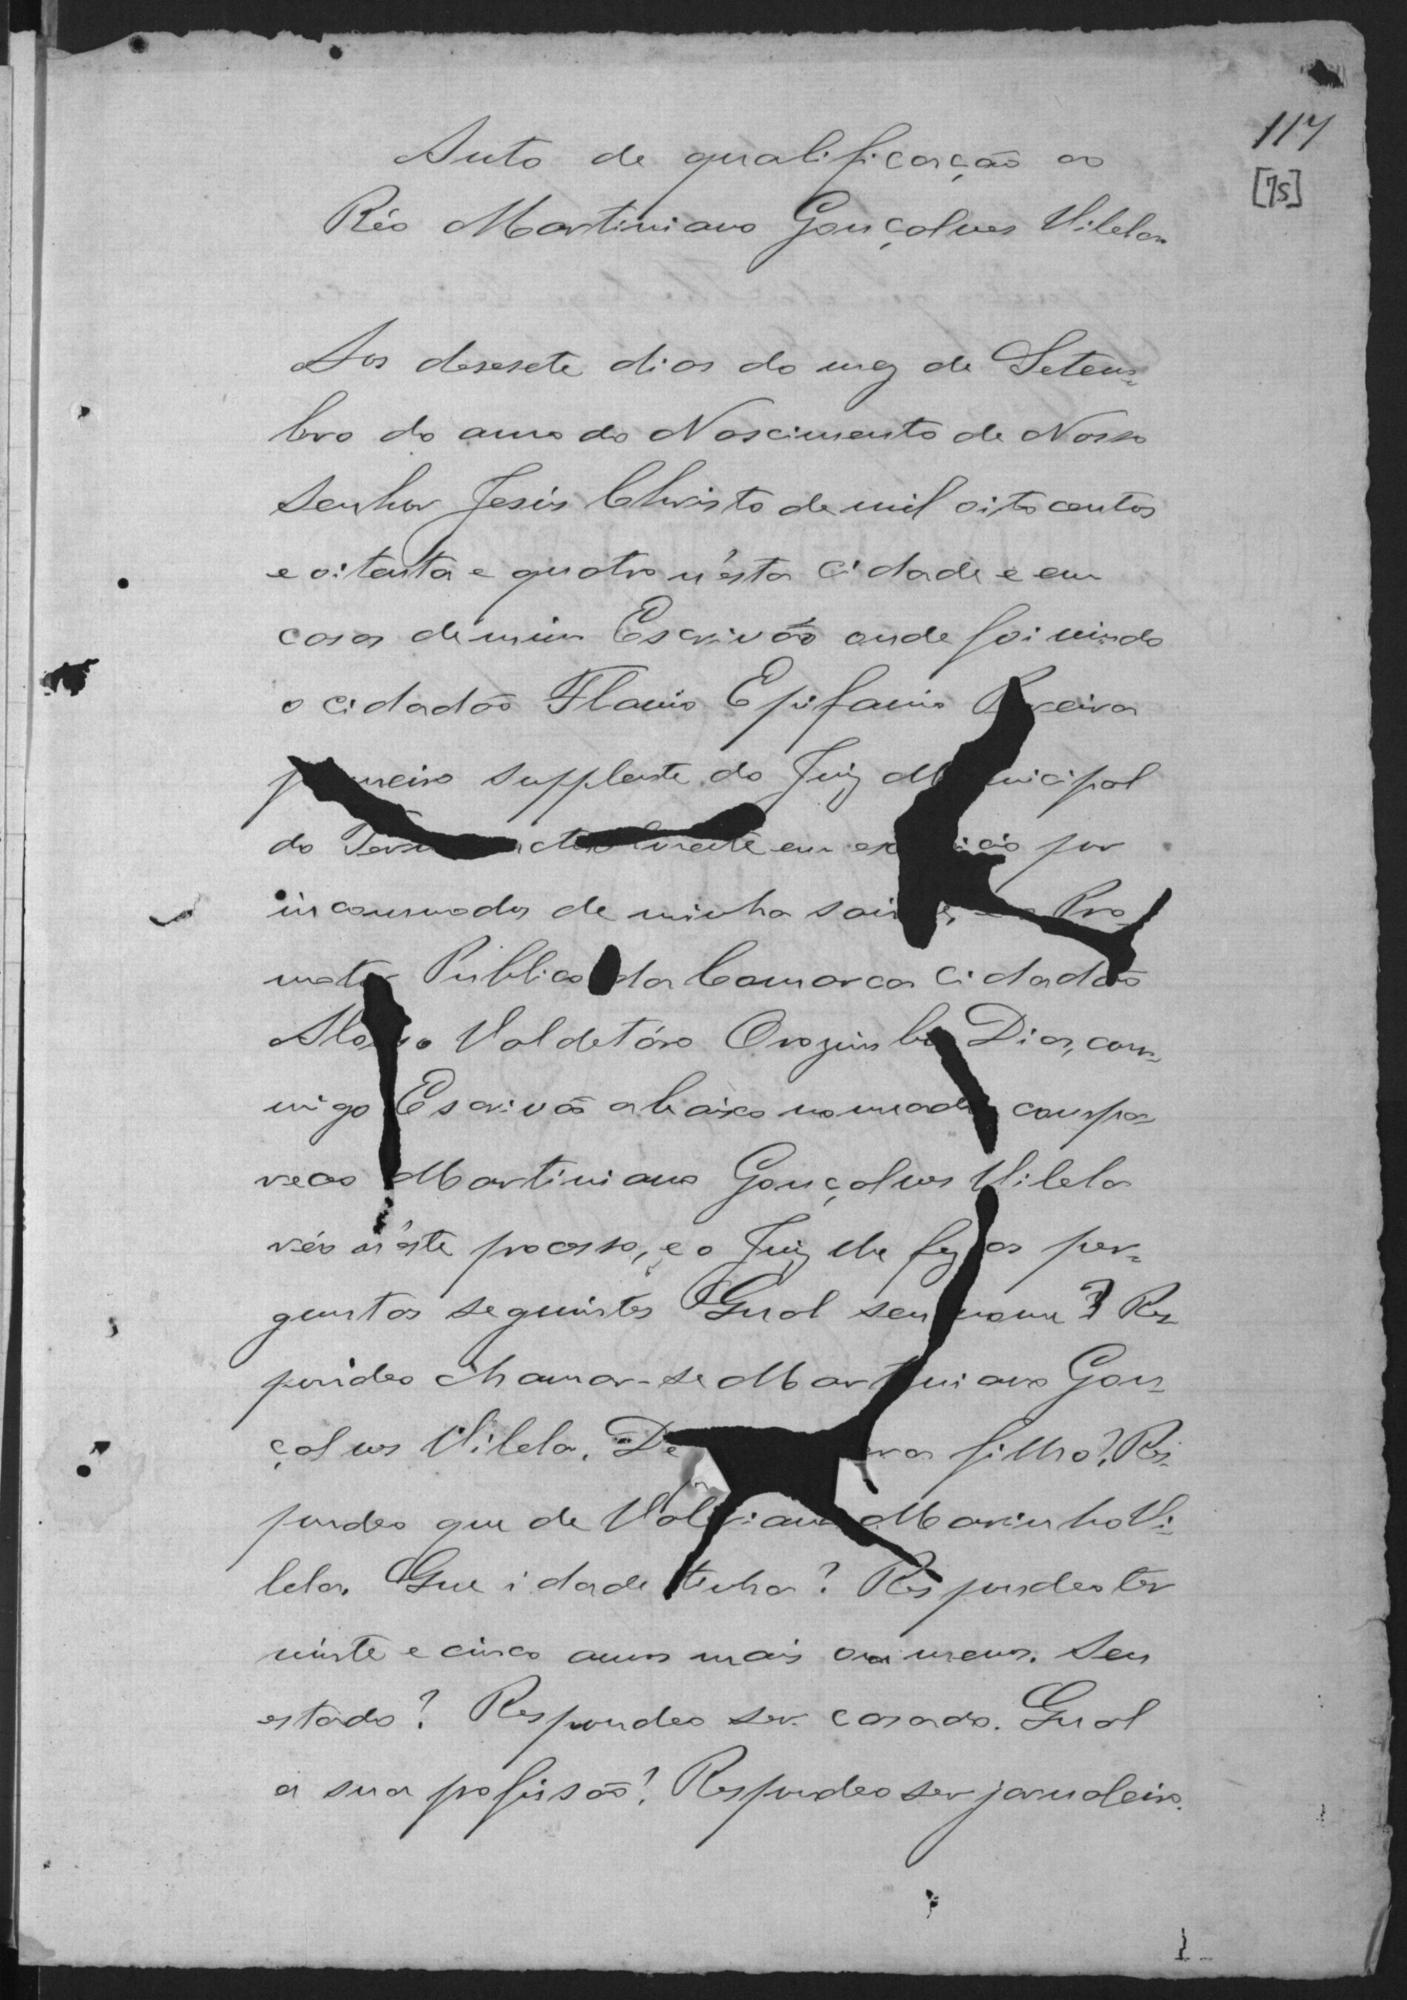 117
[75]
Auto de qualificação ao
Réo Martiniano Gonçalves Vilela
Aos desesete dias do mez de Setem-
bro do anno do Nascimento de Nosso
Senhor Jesús Christo de mil oitocentos
e oitenta e quatro n'esta cidade e em
casa de mim Escrivão onde foi vindo
o cidadão Flavio Epifanio Pereira
primeiro supplente do Juiz Municipal
do Termo actualmente em exercicio por
incommodos de minha saude, e o Pro-
motor Publico da Comarca cidadão
Valdetáro Orozimbo Dias, com-
migo Escrivão abaixo nomeado compa-
receo Martiniano Gonçalves Vilela
réo n'este processo, e o Juiz lhe fez as per-
guntas seguintes Qual seu nome? Res-
pondeo chamar-se Martiniano Gon-
çalves Vilela. De era filho? Res-
pondeo que de Valeriano Marinho Vi-
lela. Que idade tinha? Respondeo ter
vinte e cinco annos mais ou menos. Seu
estado? Respondeo ser casado. Qual
a sua profissão? Respondeo ser jornaleiro.